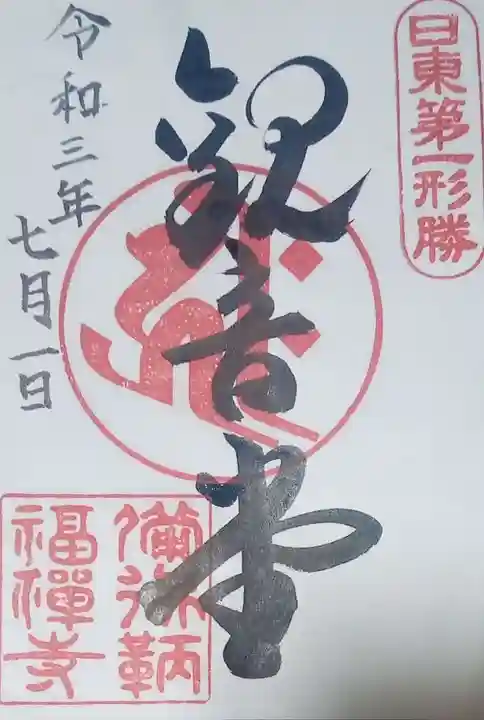 日東第一形勝
観音堂
令和三年
七月一日
備後鞆
福禅寺